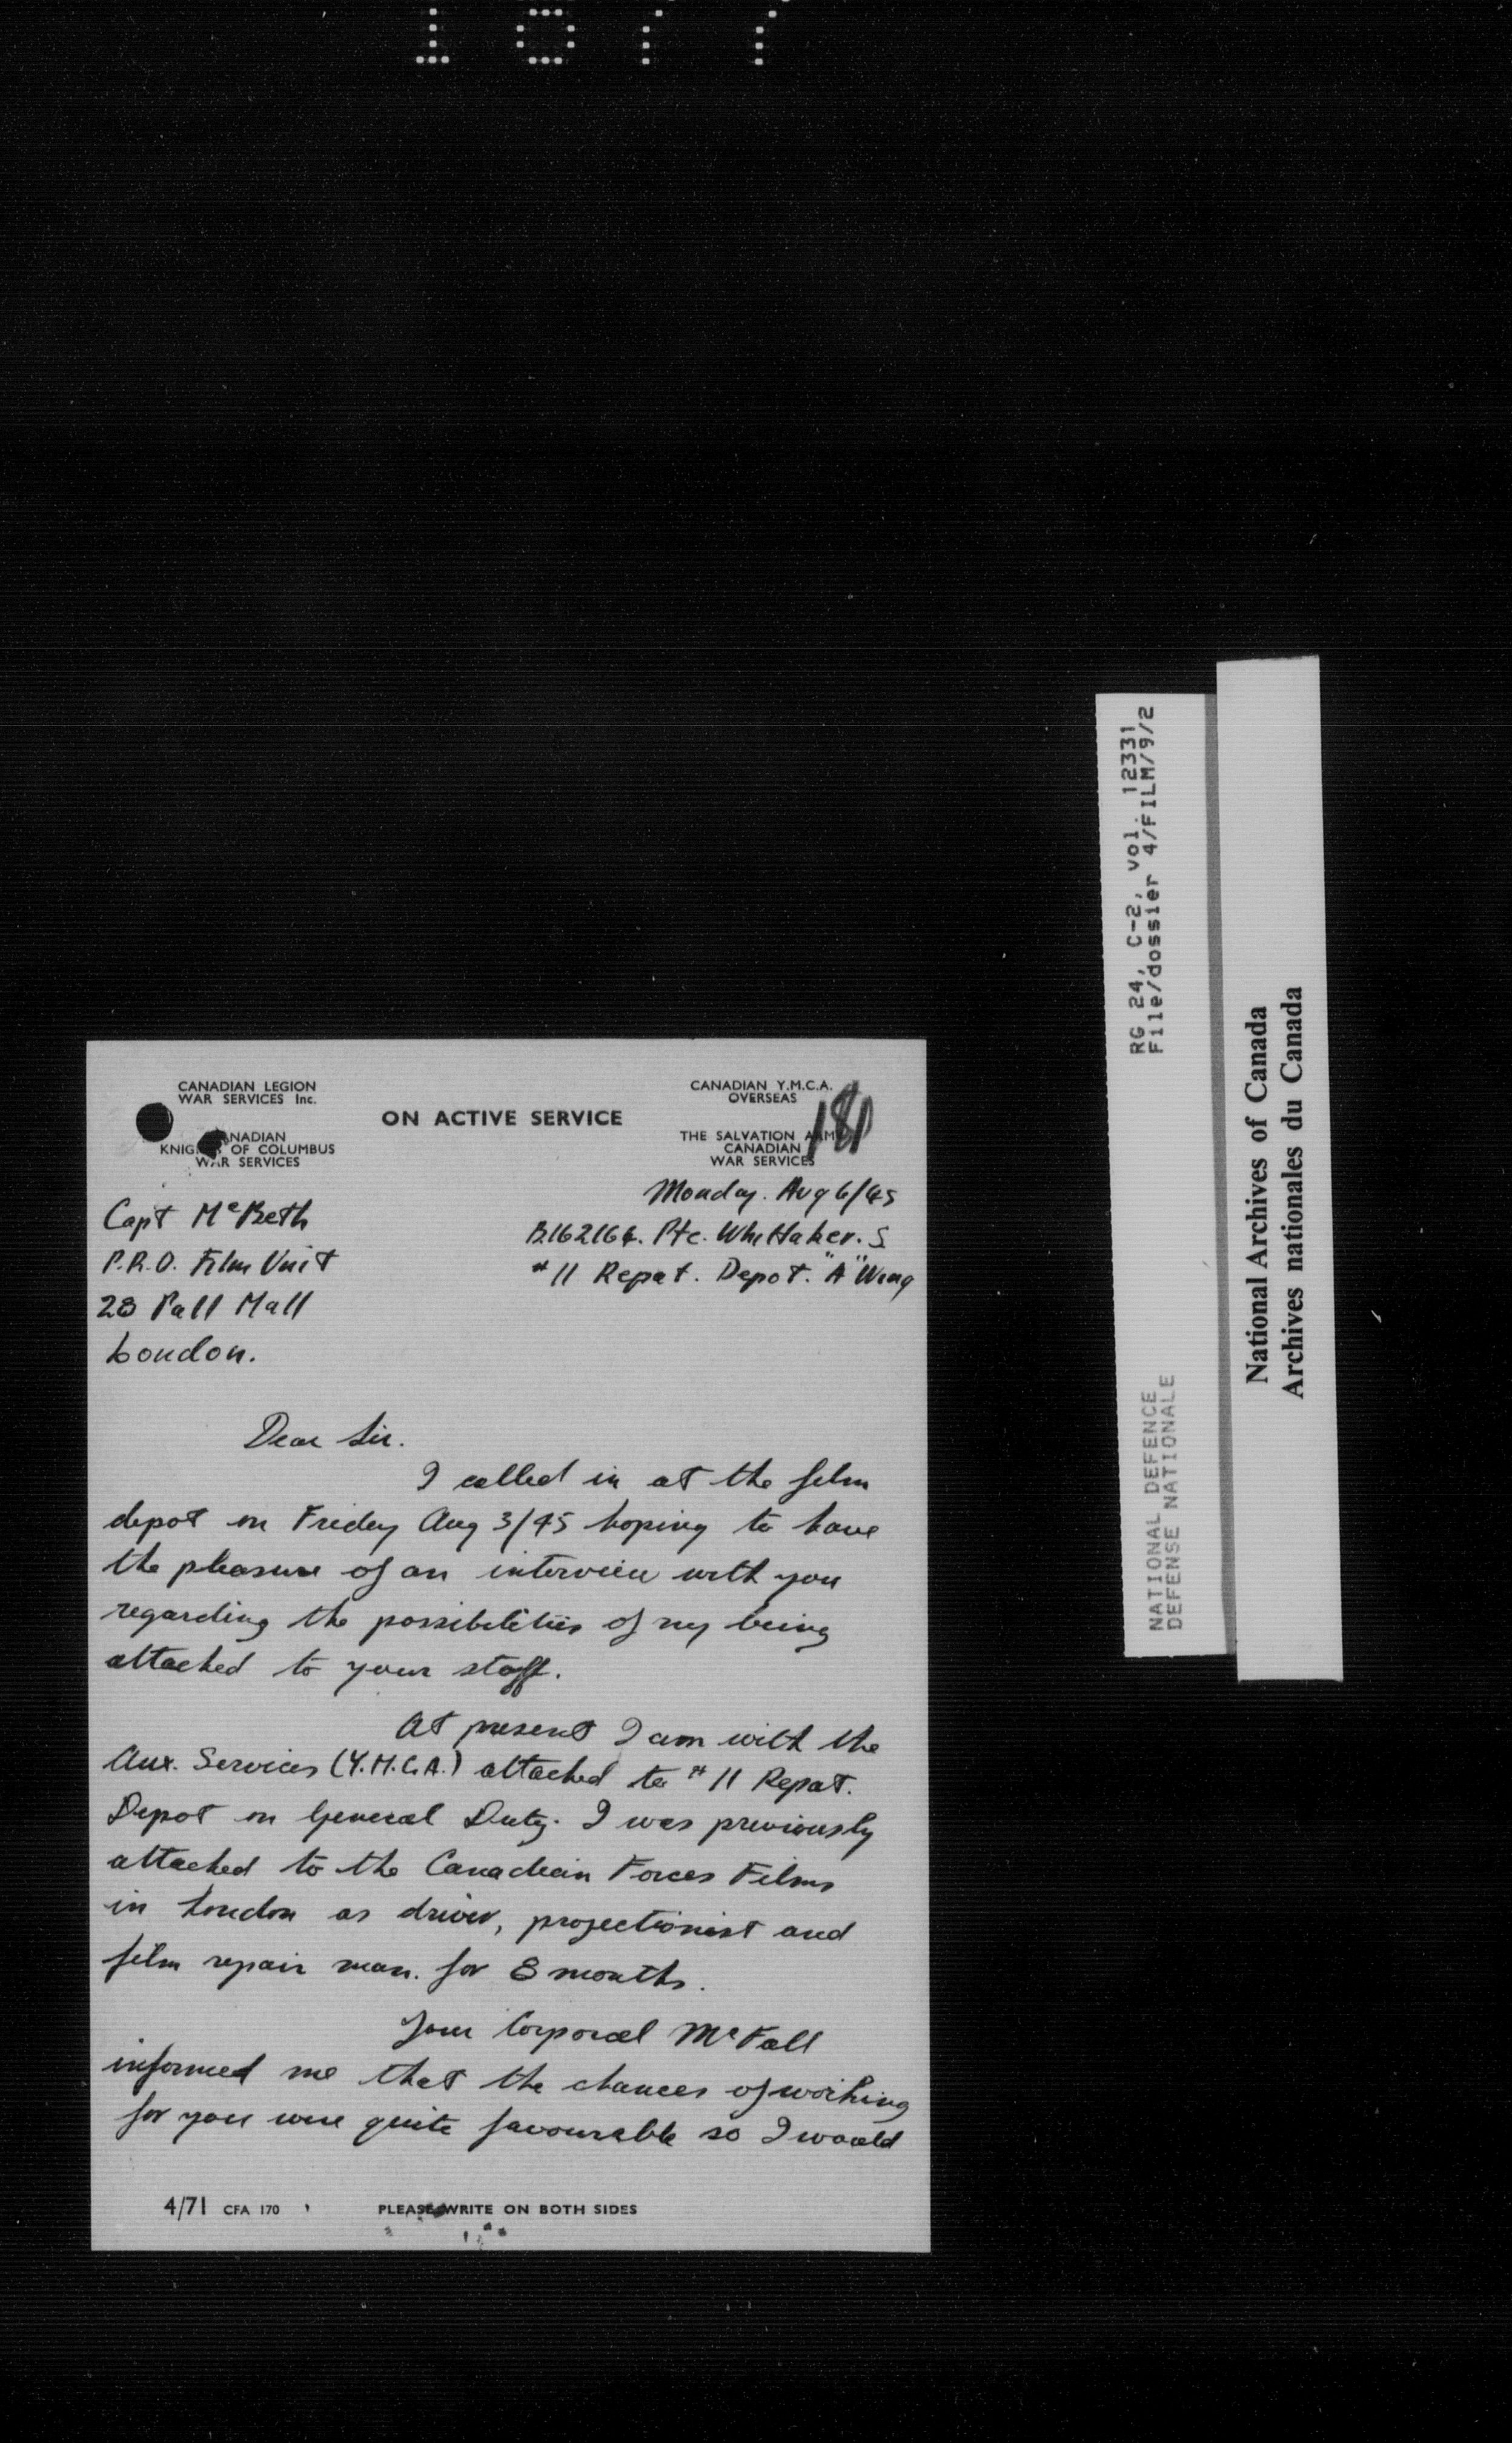 1077
CANADIAN LEGION
WAR SERVICES Inc.
ON ACTIVE SERVICE
CANADIAN Y.M.C.A.
OVERSEAS
NADIAN
KNIG S OF COLUMBUS
WAR SERVICES
THE SALVATION ARM
CANADIAN
WAR SERVICES
181
Monday. Aug 6/45
B162166. Pte. Whittaker. S
#11 Repat. Depot. "A" Wing
Capt McBeth
P.R.O. Film Unit
28 Pall Mall
London.
Dear Sir.
I called in at the film
depot on Friday Aug 3/45 hoping to have
the pleasure of an interview with you
regarding the possibilities of my being
attached to your staff.
At present I am with the
Aux. Services (Y.M.C.A.) attached to #11 Repat.
Depot on General Duty. I was previously
attached to the Canadian Forces Films
in London as driver, projectionist and
film repair man. for 8 months.
Your Corporal McFall
informed me that the chances of working
for you were quite favourable so I would
4/71 CFA 170
PLEASE WRITE ON BOTH SIDES
RG 24, C-2, vol. 12331
File/dossier 4/FILM/9/2
NATIONAL DEFENCE
DEFENSE NATIONALE
National Archives of Canada
Archives nationales du Canada